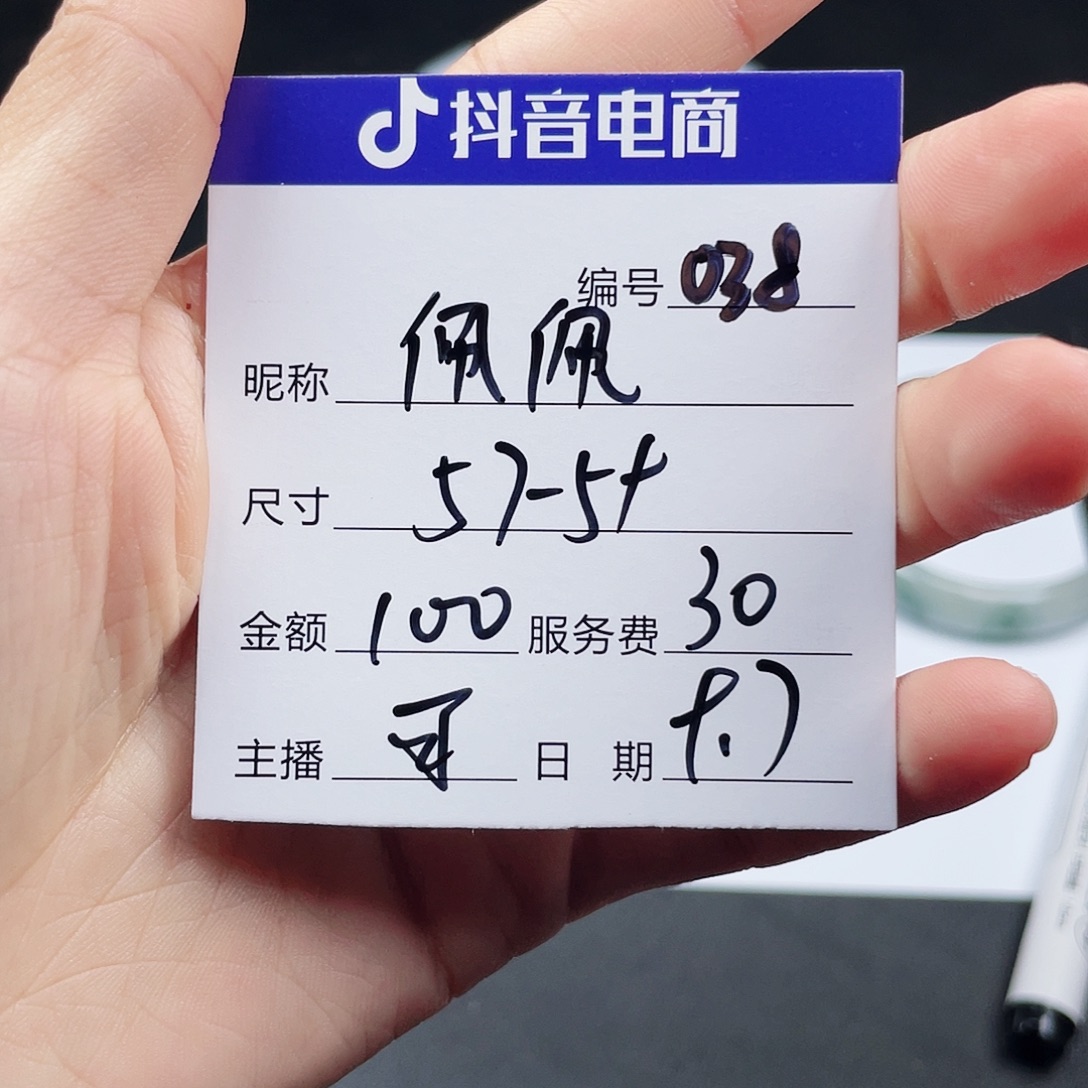 抖音电商
编号 038
昵称 佩佩
尺寸 57-58
金额 100 服务费 30
主播 日期 8.7